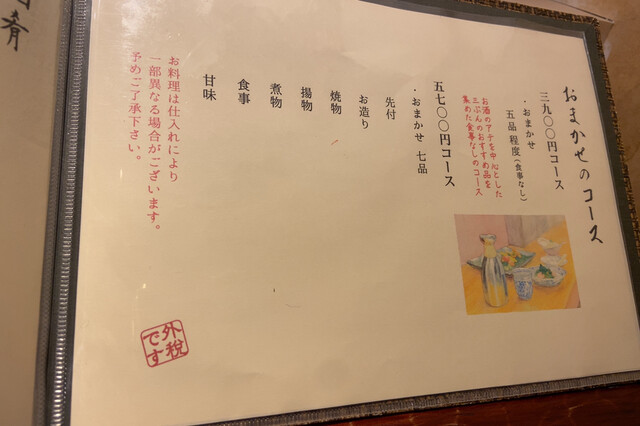 おまかせのコース
三九〇〇円コース
・おまかせ
五品程度（食事なし）
お酒のアテを中心とした
三ぶんのおすすめ品を
集めた食事なしのコース
五七〇〇円コース
・おまかせ 七品
先付
お造り
焼物
揚物
煮物
食事
甘味
お料理は仕入れにより
一部異なる場合がございます。
予めご了承下さい。
外税
です
肴